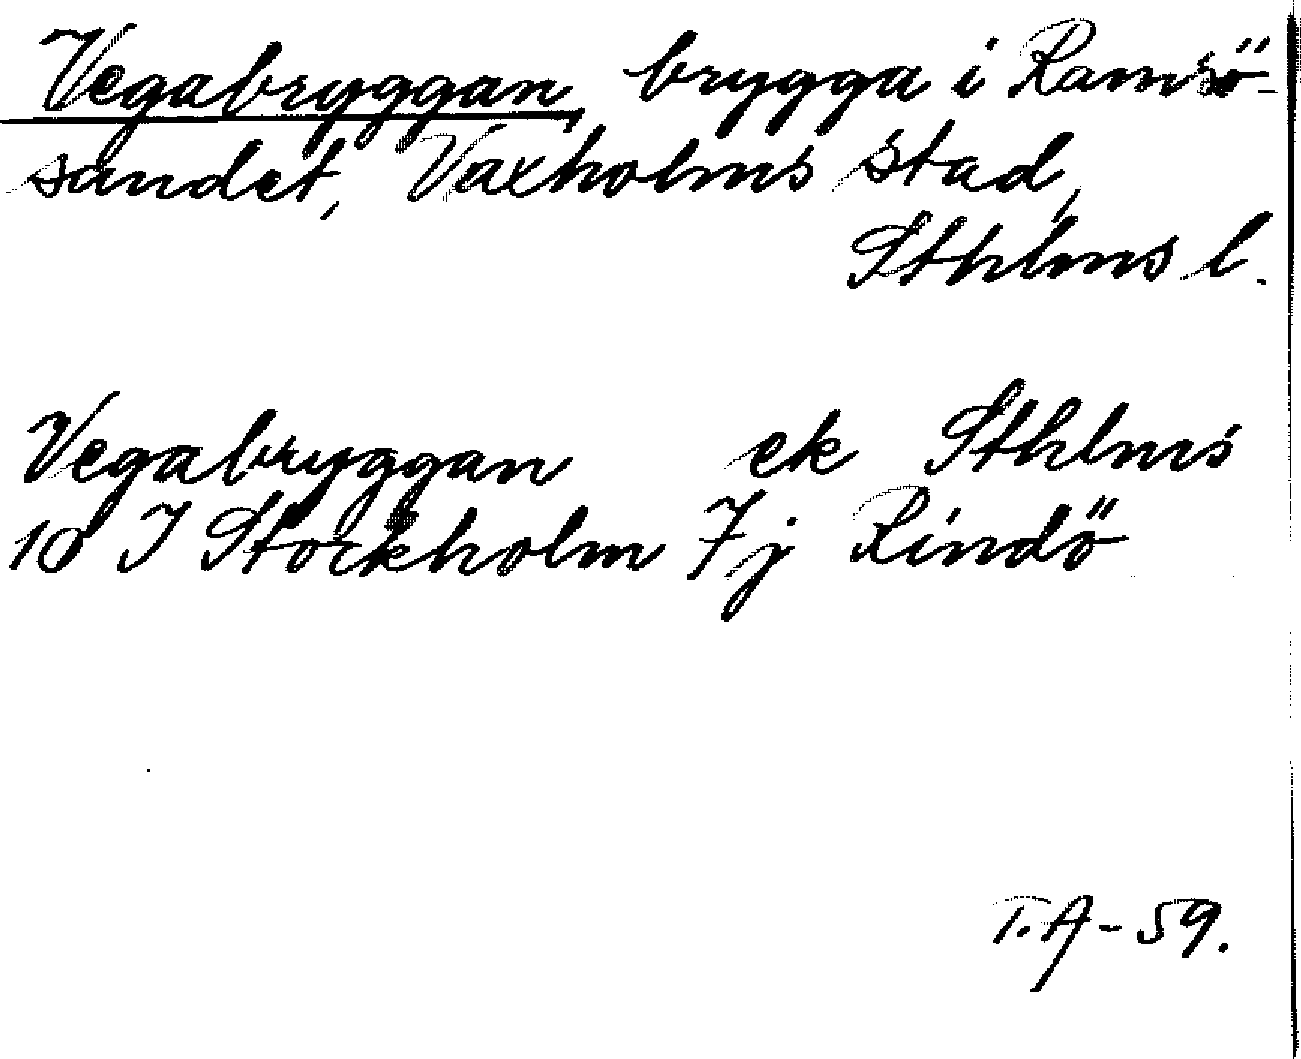 Vegabryggan, brygga i Ramsö-
sundet, Vaxholms stad,
Sthlms l.
Vegabryggan ek Sthlms
10 I Stockholm 7j Rindö
T.A-59.